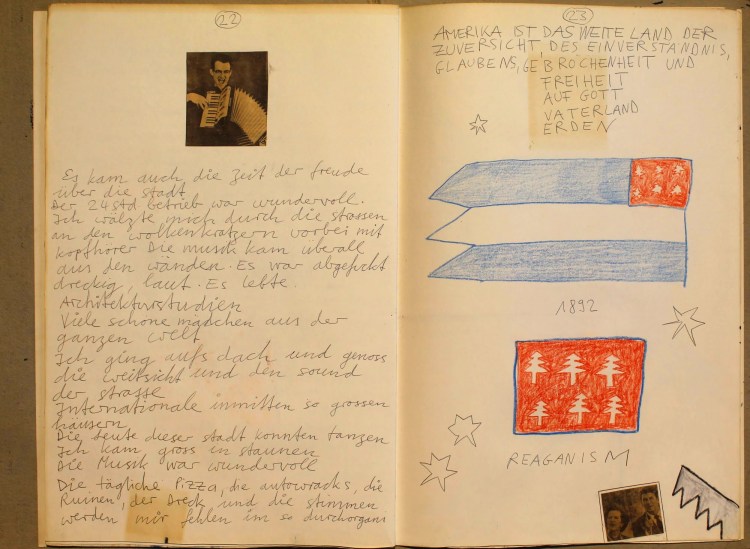 22
Es kam auch die Zeit der freude
über die stadt
Der 24 Std betrieb war wundervoll.
Ich wälzte mich durch die strassen
an den wolkenkratzern vorbei mit
kopfhörer Die musik kam überall
aus den wänden. Es war abgefuckt
dreckig, laut. Es lebte.
Architekturstudien
Viele schöne mädchen aus der
ganzen welt
Ich ging aufs dach und genoss
die weitsicht und den sound
der strasse
Internationale inmitten so grossen
häusern
Die leute dieser stadt konnten tanzen
Ich kam gross in staunen
Die Musik war wundervoll
Die tägliche Pizza, die autowracks, die
Ruinen, der Dreck, und die stimmen
werden mir fehlen im so durchorgans
23
AMERIKA IST DAS WEITE LAND DER
ZUVERSICHT, DES EINVERSTÄNDNIS,
GLAUBENS, GEBROCHENHEIT UND
FREIHEIT
AUF GOTT
VATERLAND
ERDEN
1892
REAGANISM